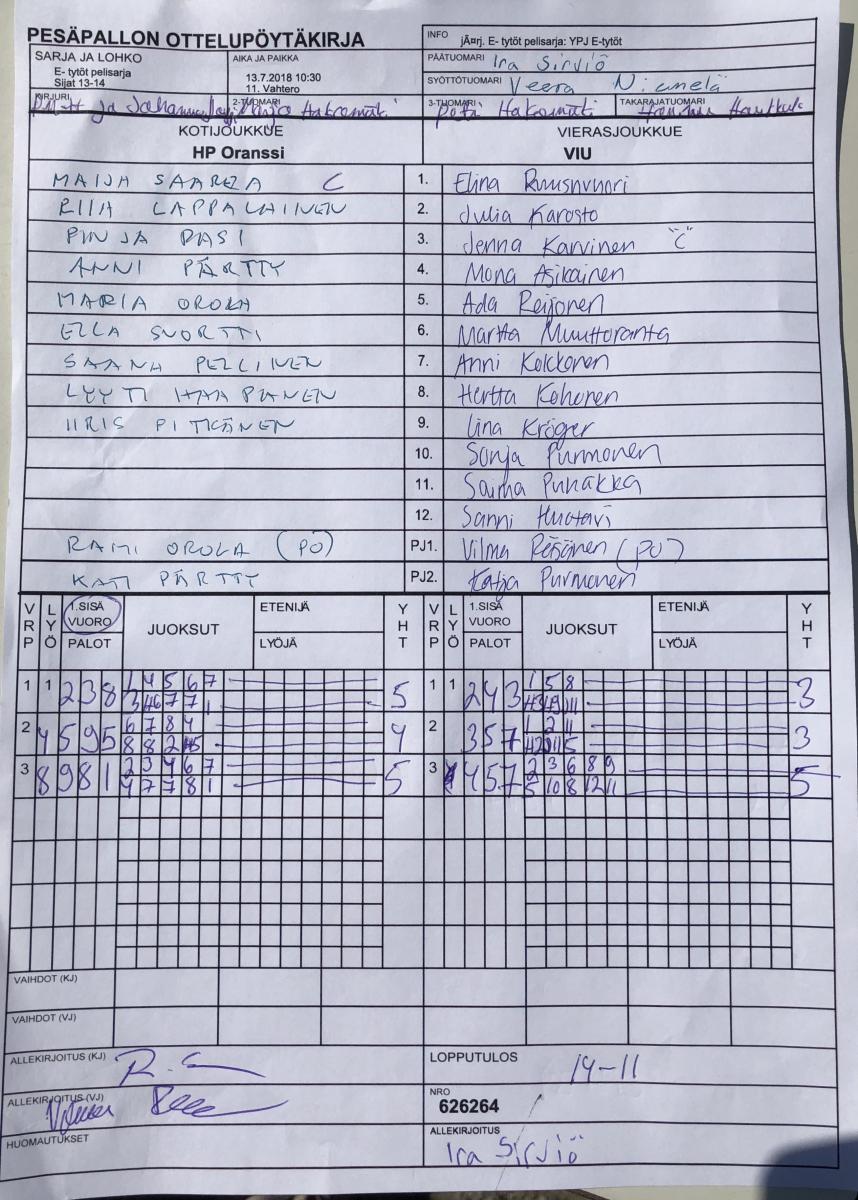 PESÄPALLON OTTELUPÖYTÄKIRJA
INFO jÃ¤rj. E- tytöt pelisarja: YPJ E-tytöt
SARJA JA LOHKO
E- tytöt pelisarja
Sijat 13-14
AIKA JA PAIKKA
13.7.2018 10:30
11. Vahtero
PÄÄTUOMARI Ira Sirviö
SYÖTTÖTUOMARI Veera Niemelä
KIRJURI
2-TUOMARI
3-TUOMARI
TAKARAJATUOMARI
KOTIJOUKKUE
HP Oranssi
VIERASJOUKKUE
VIU
MAIJA SAARELA C 1. Elina Ruusnvuori
RIIA LAPPALAINEN 2. Julia Karosto
PINJA PASI 3. Jenna Karvinen "C"
ANNI PÄRTTY 4. Mona Asikainen
MARIA OROLA 5. Ada Reijonen
ELLA SUORTTI 6. Martta Muuttoranta
SAANA PELLINEN 7. Anni Kolkkonen
LYYTI HAAPANEN 8. Hertta Kohonen
IIRIS PITKÄNEN 9. Iina Kröger
10. Sonja Purmonen
11. Saima Punakka
12. Sanni Huotari
RAMI OROLA (PÖ) PJ1. Vilma Räsänen (PÖ)
KATI PÄRTTY PJ2. Katja Purmonen
VRP LYÖ 1.SISÄ VUORO PALOT JUOKSUT ETENIJÄ LYÖJÄ YHT VRP LYÖ 1.SISÄ VUORO PALOT JUOKSUT ETENIJÄ LYÖJÄ YHT
1 1 2 3 8 1 4 5 6 7 5 1 1 2 4 3 1 5 8 3
3 4 6 7 7 1
2 4 5 9 5 6 7 8 4 4 2 3 5 7 1 2 11 3
8 8 2
3 8 9 8 1 2 3 4 6 7 5 3 4 5 7 2 3 6 8 9 5
4 7 7 8 1 5 10 8 12 11
VAIHDOT (KJ)
VAIHDOT (VJ)
ALLEKIRJOITUS (KJ)
LOPPUTULOS 14-11
ALLEKIRJOITUS (VJ)
NRO
626264
HUOMAUTUKSET
ALLEKIRJOITUS
Ira Sirviö